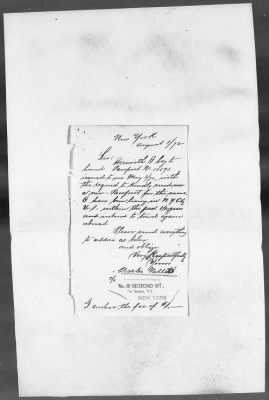 New York
August 2/72
Sir:
Herewith I beg to
hand Passport No. 
issued to me May 9/71, with
the request to kindly send me
a new Passport for the same
I have been living in N.Y. City
U.S. within the past 
and intend to travel again
abroad.
Please send everything
to address as below
and oblige
Very Respectfully
Yours
Charles
c/o
No. 8 SECOND ST.
NEW YORK
I enclose the fee of